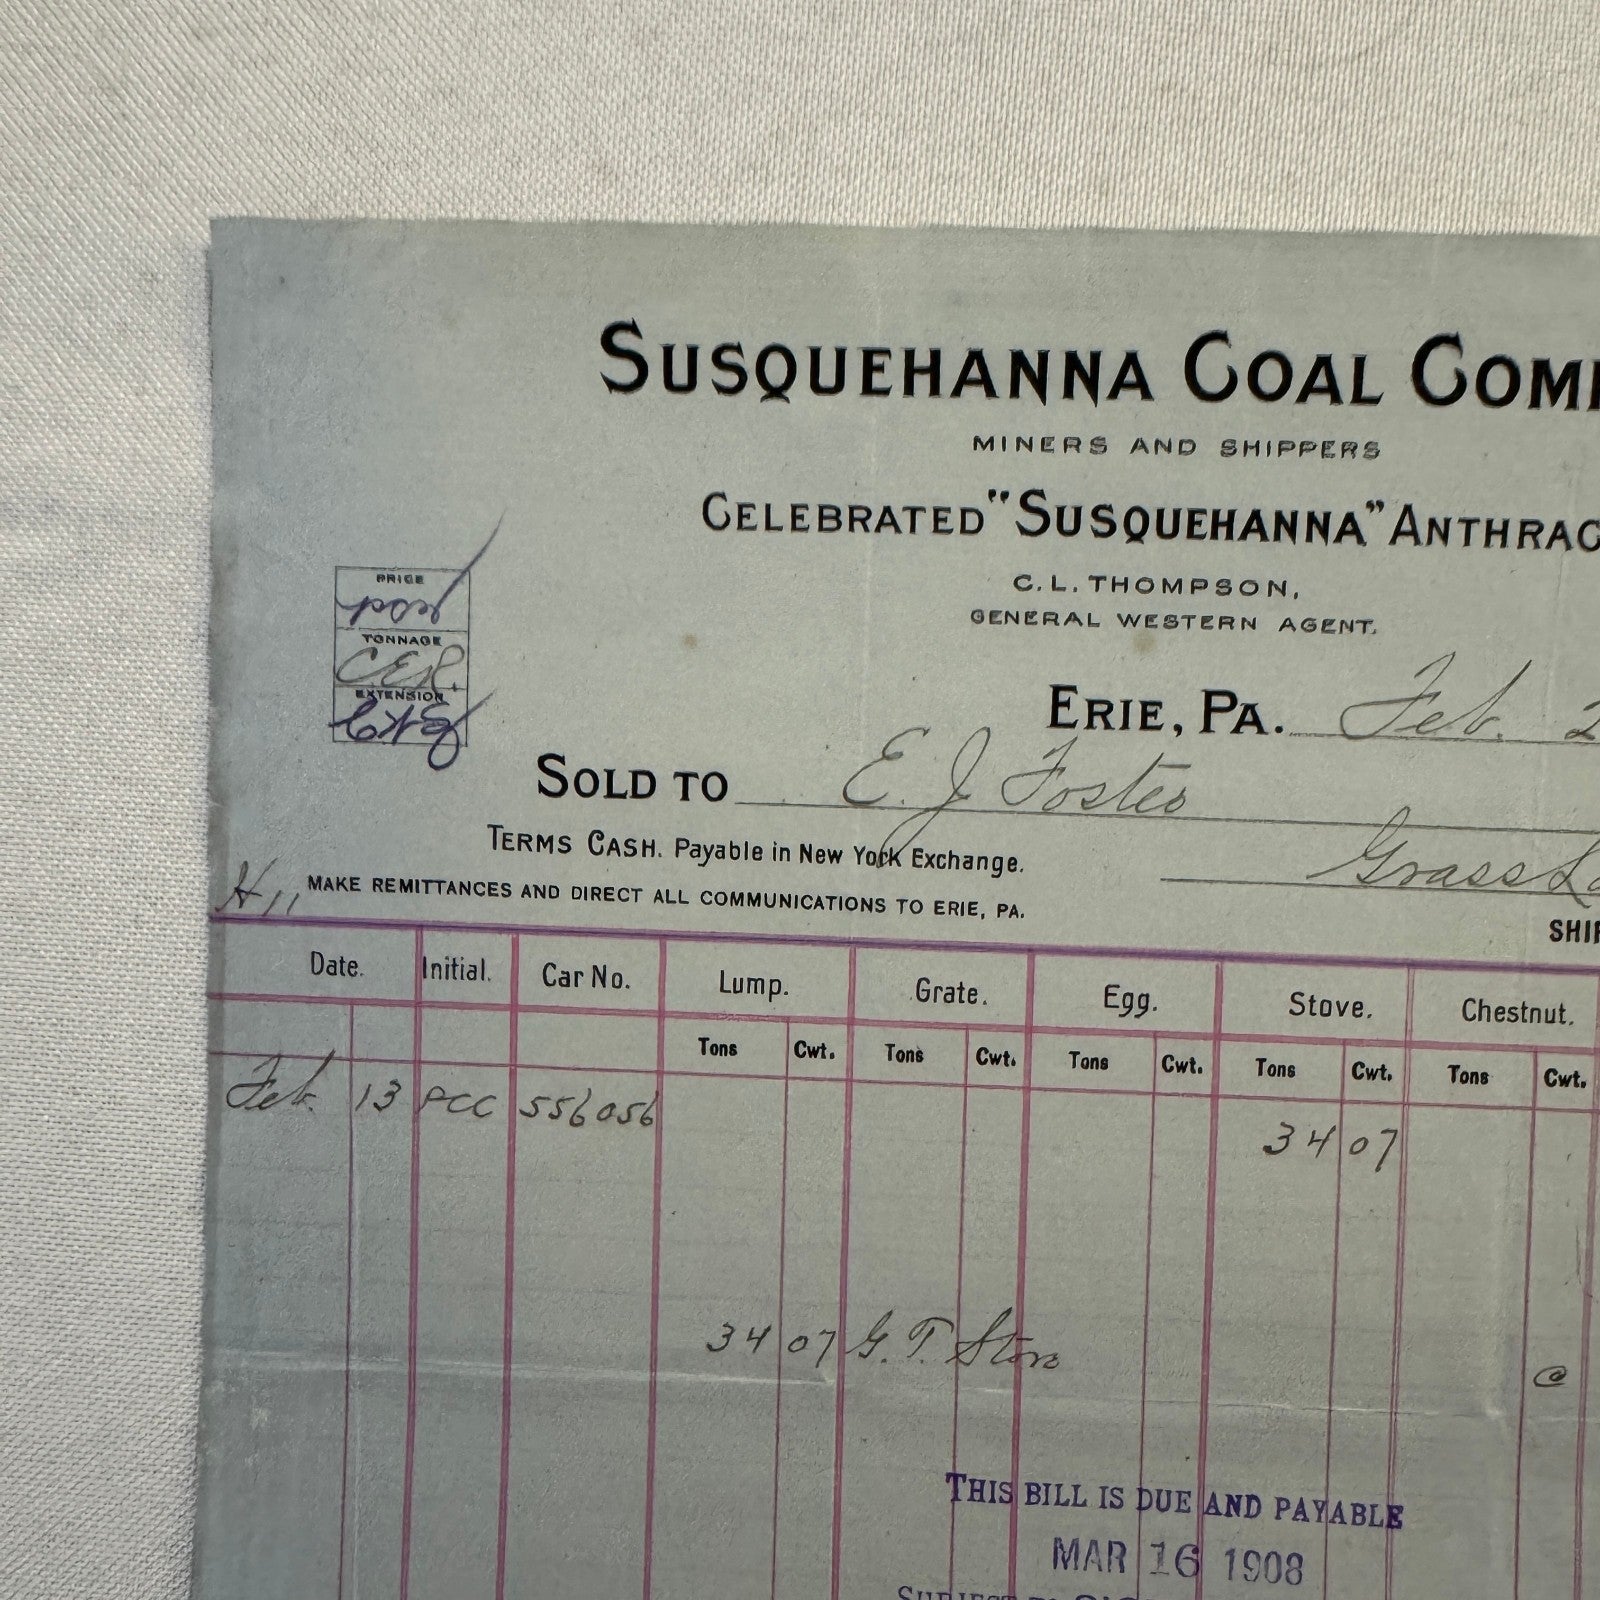 SUSQUEHANNA COAL COMP
MINERS AND SHIPPERS
CELEBRATED "SUSQUEHANNA" ANTHRAC
C. L. THOMPSON,
GENERAL WESTERN AGENT.
PRICE
TONNAGE
EXTENSION
ERIE, PA. Feb. 2
SOLD TO E. J. Foster
TERMS CASH. Payable in New York Exchange.
Grass La
MAKE REMITTANCES AND DIRECT ALL COMMUNICATIONS TO ERIE, PA.
SHIP
Date. Initial. Car No. Lump. Grate. Egg. Stove. Chestnut.
Tons Cwt. Tons Cwt. Tons Cwt. Tons Cwt. Tons Cwt.
Feb. 13 PCC 556056 34 07
34 07 G. T. Stove @
THIS BILL IS DUE AND PAYABLE
MAR 16 1908